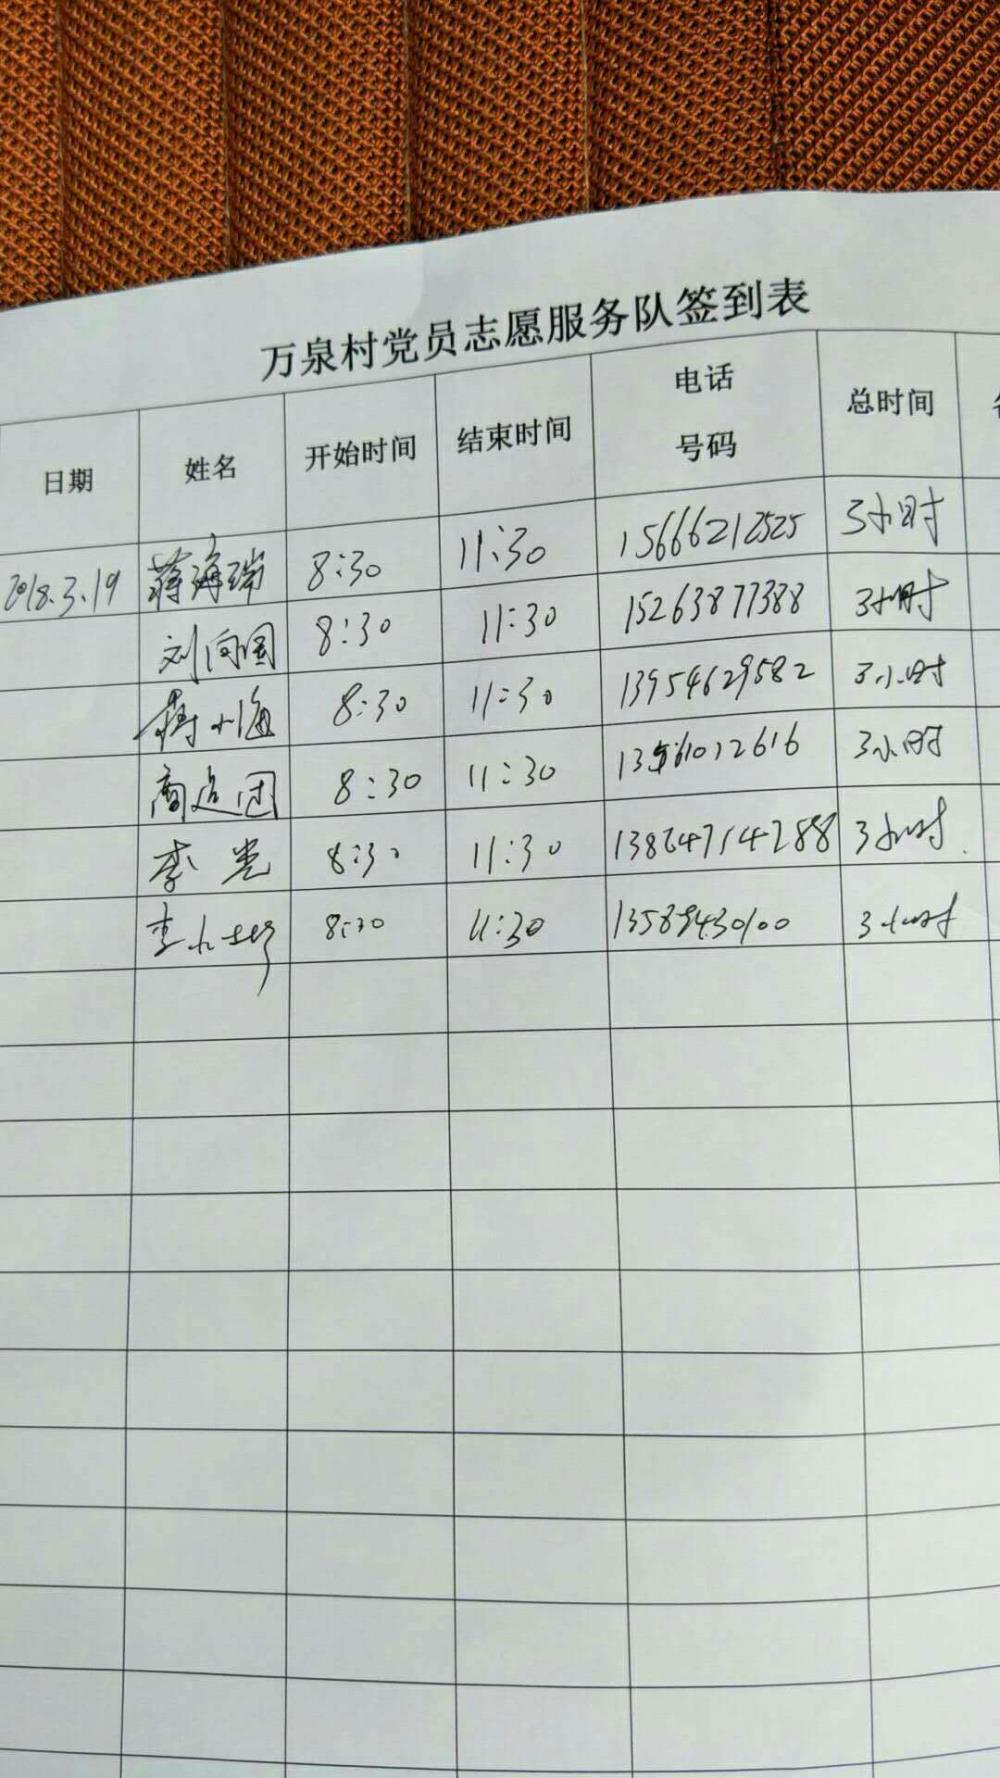 万泉村党员志愿服务队签到表
日期 姓名 开始时间 结束时间 电话号码 总时间
2018.3.19 蒋海瑞 8:30 11:30 15666212525 3小时
刘向国 8:30 11:30 15263877388 3小时
蒋小海 8:30 11:30 13954629582 3小时
8:30 11:30 13561012616 3小时
李光 8:30 11:30 13864714288 3小时
8:30 11:30 13589430100 3小时